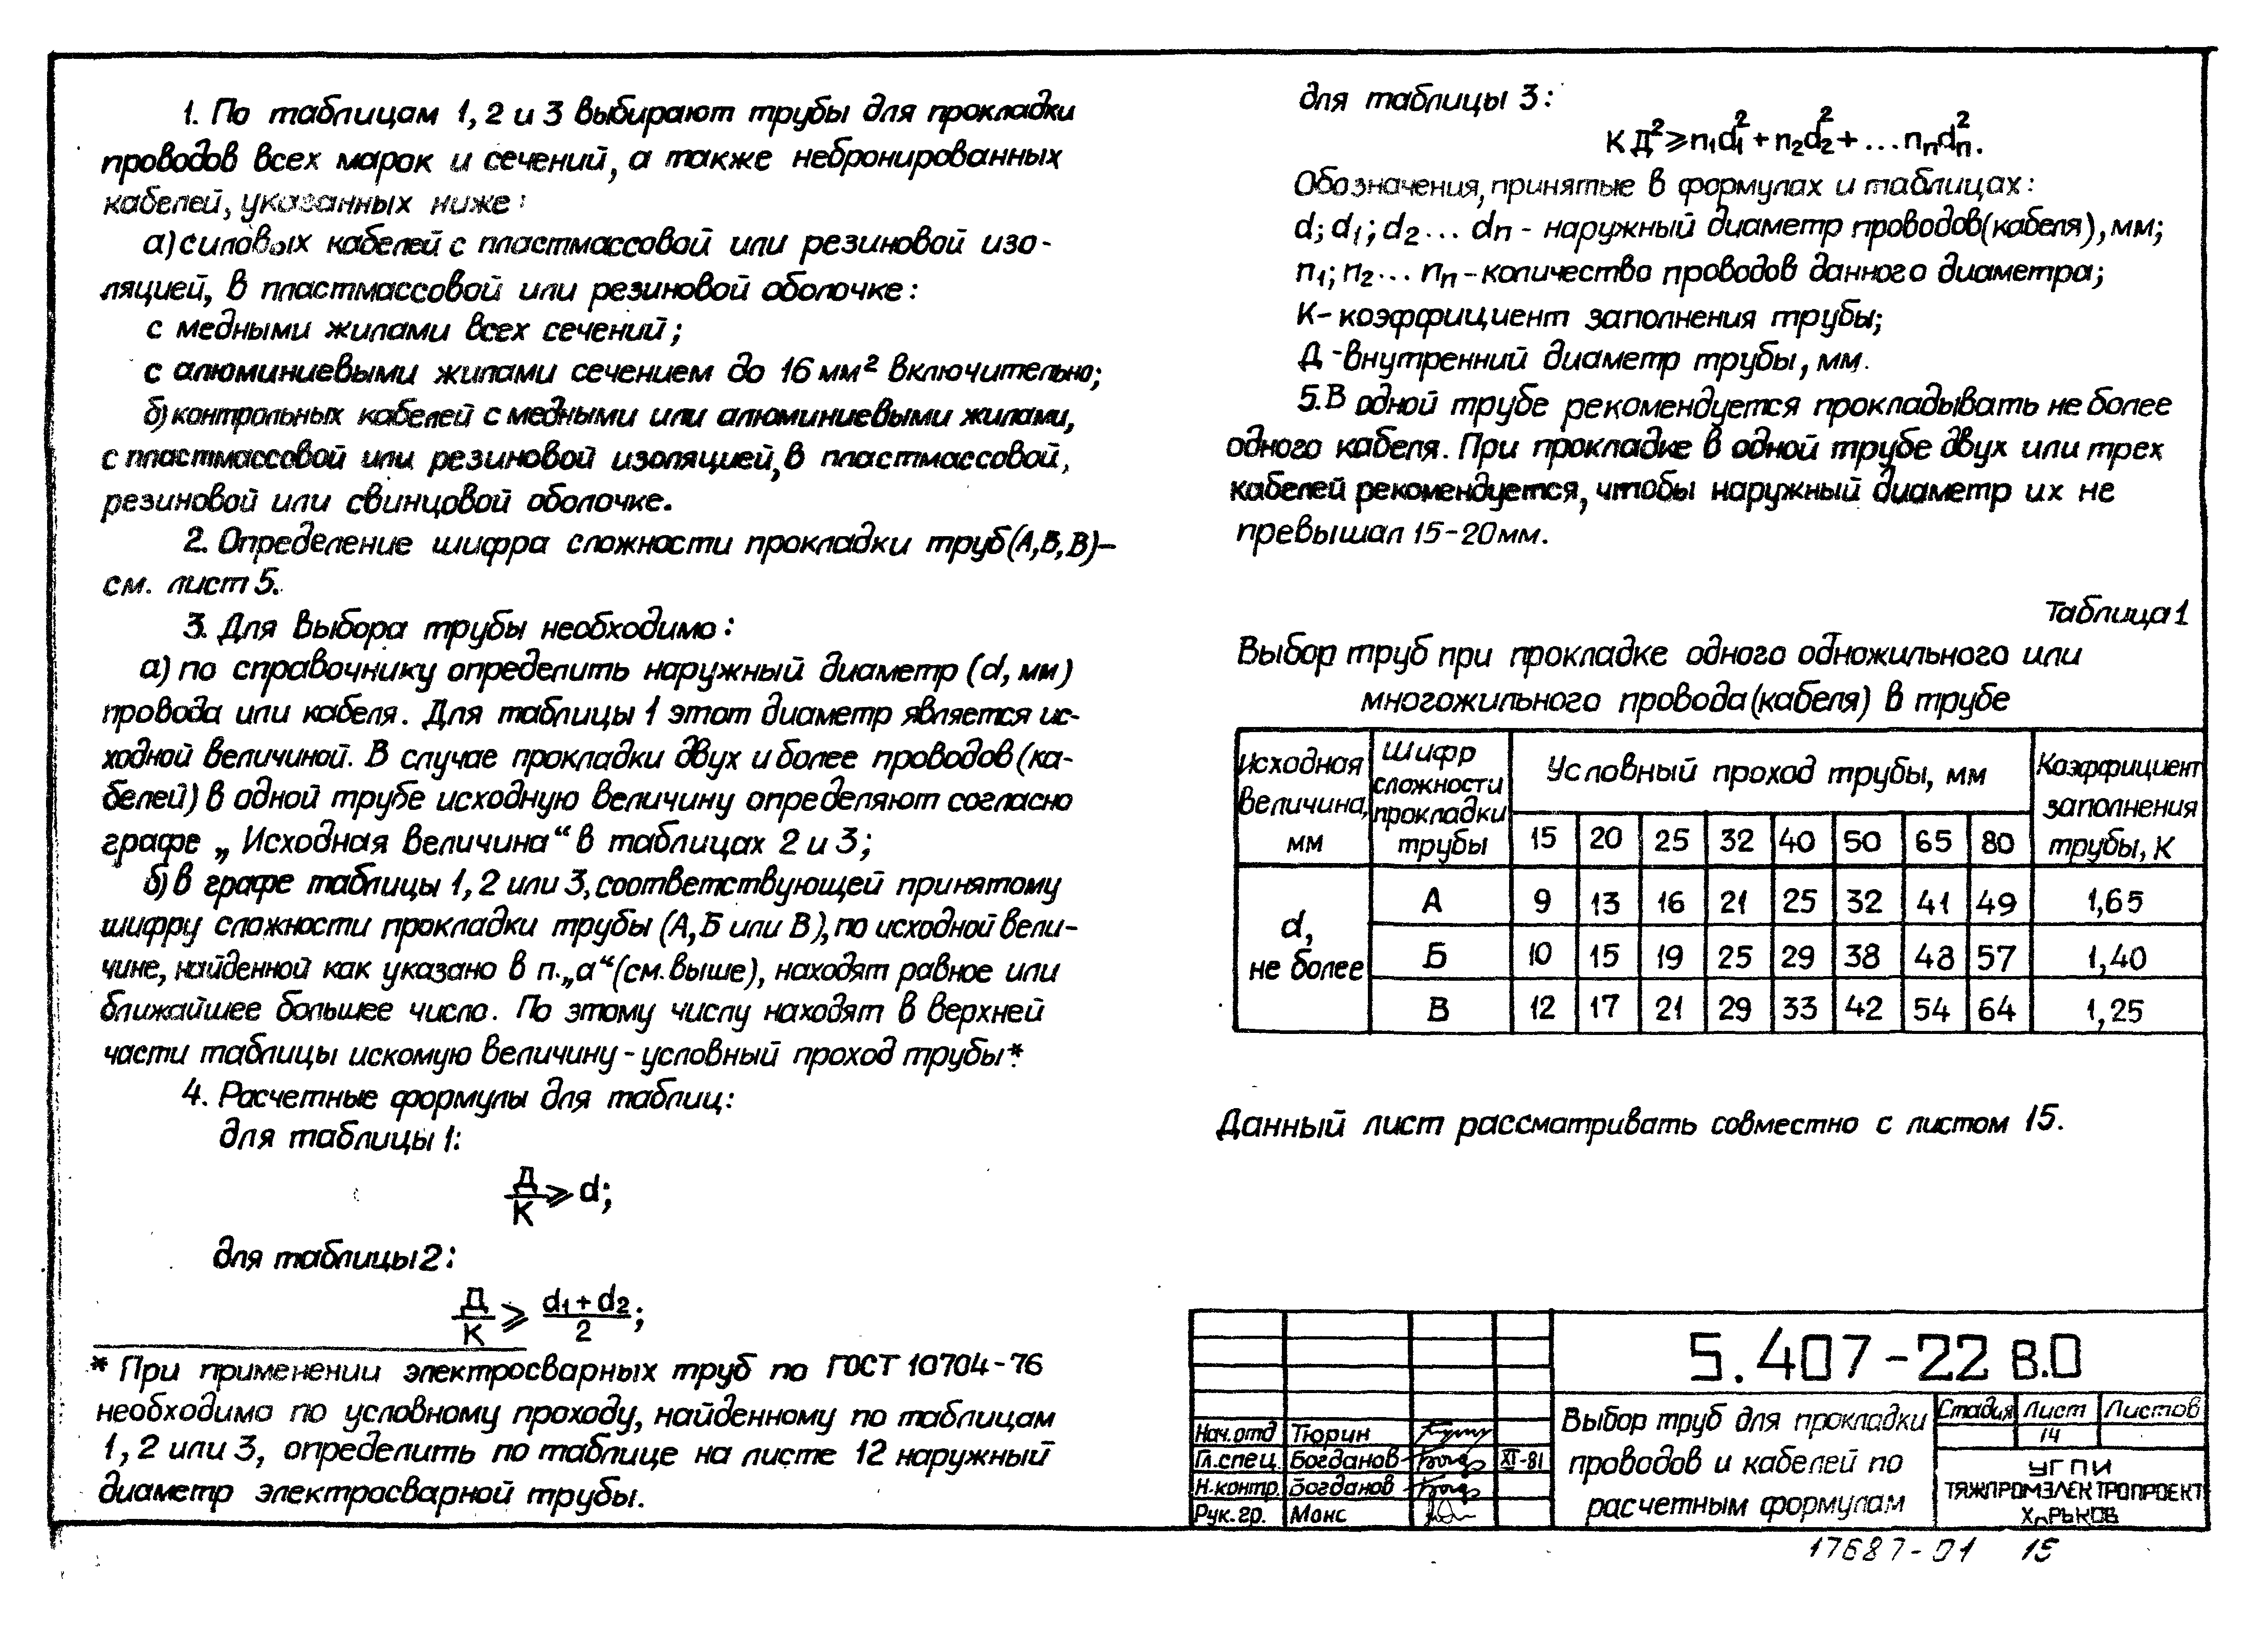 1. По таблицам 1, 2 и 3 выбирают трубы для прокладки
проводов всех марок и сечений, а также небронированных
кабелей, указанных ниже:
а) силовых кабелей с пластмассовой или резиновой изо-
ляцией, в пластмассовой или резиновой оболочке:
с медными жилами всех сечений;
с алюминиевыми жилами сечением до 16 мм² включительно;
б) контрольных кабелей с медными или алюминиевыми жилами,
с пластмассовой или резиновой изоляцией, в пластмассовой,
резиновой или свинцовой оболочке.
2. Определение шифра сложности прокладки труб (А, Б, В) –
см. лист 5.
3. Для выбора трубы необходимо:
а) по справочнику определить наружный диаметр (d, мм)
провода или кабеля. Для таблицы 1 этот диаметр является ис-
ходной величиной. В случае прокладки двух и более проводов (ка-
белей) в одной трубе исходную величину определяют согласно
графе „Исходная величина“ в таблицах 2 и 3;
б) в графе таблицы 1, 2 или 3, соответствующей принятому
шифру сложности прокладки трубы (А, Б или В), по исходной вели-
чине, найденной как указано в п. „а“ (см. выше), находят равное или
ближайшее большее число. По этому числу находят в верхней
части таблицы искомую величину - условный проход трубы*
4. Расчетные формулы для таблиц:
для таблицы 1:
Д/К ⩾ d;
для таблицы 2:
Д/К ⩾ (d₁ + d₂)/2;
* При применении электросварных труб по ГОСТ 10704-76
необходимо по условному проходу, найденному по таблицам
1, 2 или 3, определить по таблице на листе 12 наружный
диаметр электросварной трубы.
для таблицы 3:
К Д² ⩾ n₁d₁² + n₂d₂² + ... nₙdₙ².
Обозначения, принятые в формулах и таблицах:
d; d₁; d₂ ... dₙ - наружный диаметр проводов (кабеля), мм;
n₁; n₂ ... nₙ - количество проводов данного диаметра;
К - коэффициент заполнения трубы;
Д - внутренний диаметр трубы, мм.
5. В одной трубе рекомендуется прокладывать не более
одного кабеля. При прокладке в одной трубе двух или трех
кабелей рекомендуется, чтобы наружный диаметр их не
превышал 15-20 мм.
Таблица 1
Выбор труб при прокладке одного одножильного или
многожильного провода (кабеля) в трубе
Исходная величина, мм | Шифр сложности прокладки трубы | Условный проход трубы, мм | Коэффициент заполнения трубы, К
15 20 25 32 40 50 65 80
d, не более
А 9 13 16 21 25 32 41 49 1,65
Б 10 15 19 25 29 38 48 57 1,40
В 12 17 21 29 33 42 54 64 1,25
Данный лист рассматривать совместно с листом 15.
5.407-22 В.0
Нач. отд Тюрин
Гл. спец. Богданов XI-81
Н. контр. Богданов
Рук. гр. Монс
Выбор труб для прокладки
проводов и кабелей по
расчетным формулам
Стадия Лист Листов
14
УГПИ
ТЯЖПРОМЭЛЕКТРОПРОЕКТ
ХАРЬКОВ
17687-01 15